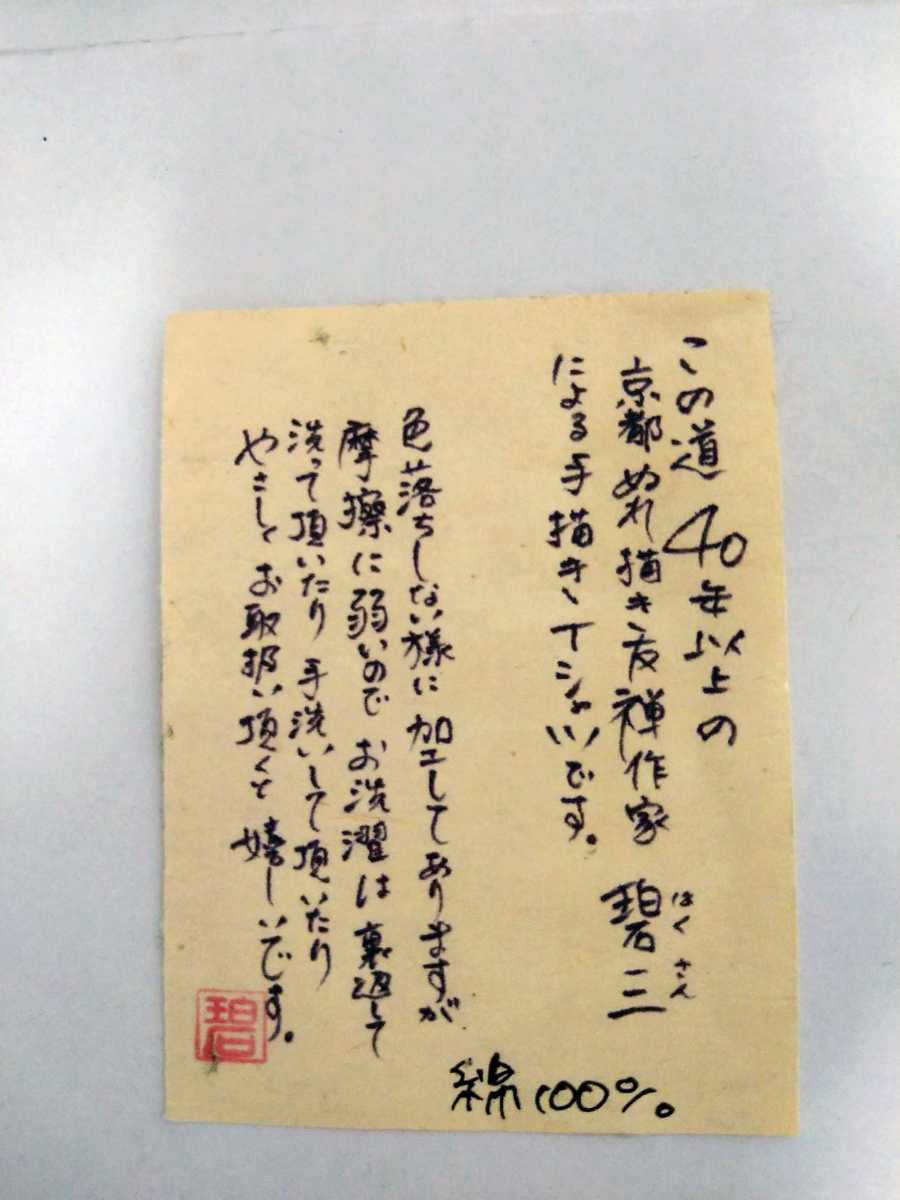 この道40年以上の
京都ぬれ描き友禅作家 碧三
はくさん
による手描きTシャツです。
色落ちしない様に加工してありますが
摩擦に弱いのでお洗濯は裏返して
洗って頂いたり手洗いして頂いたり
やさしくお取扱い頂くと嬉しいです。
碧
綿100%